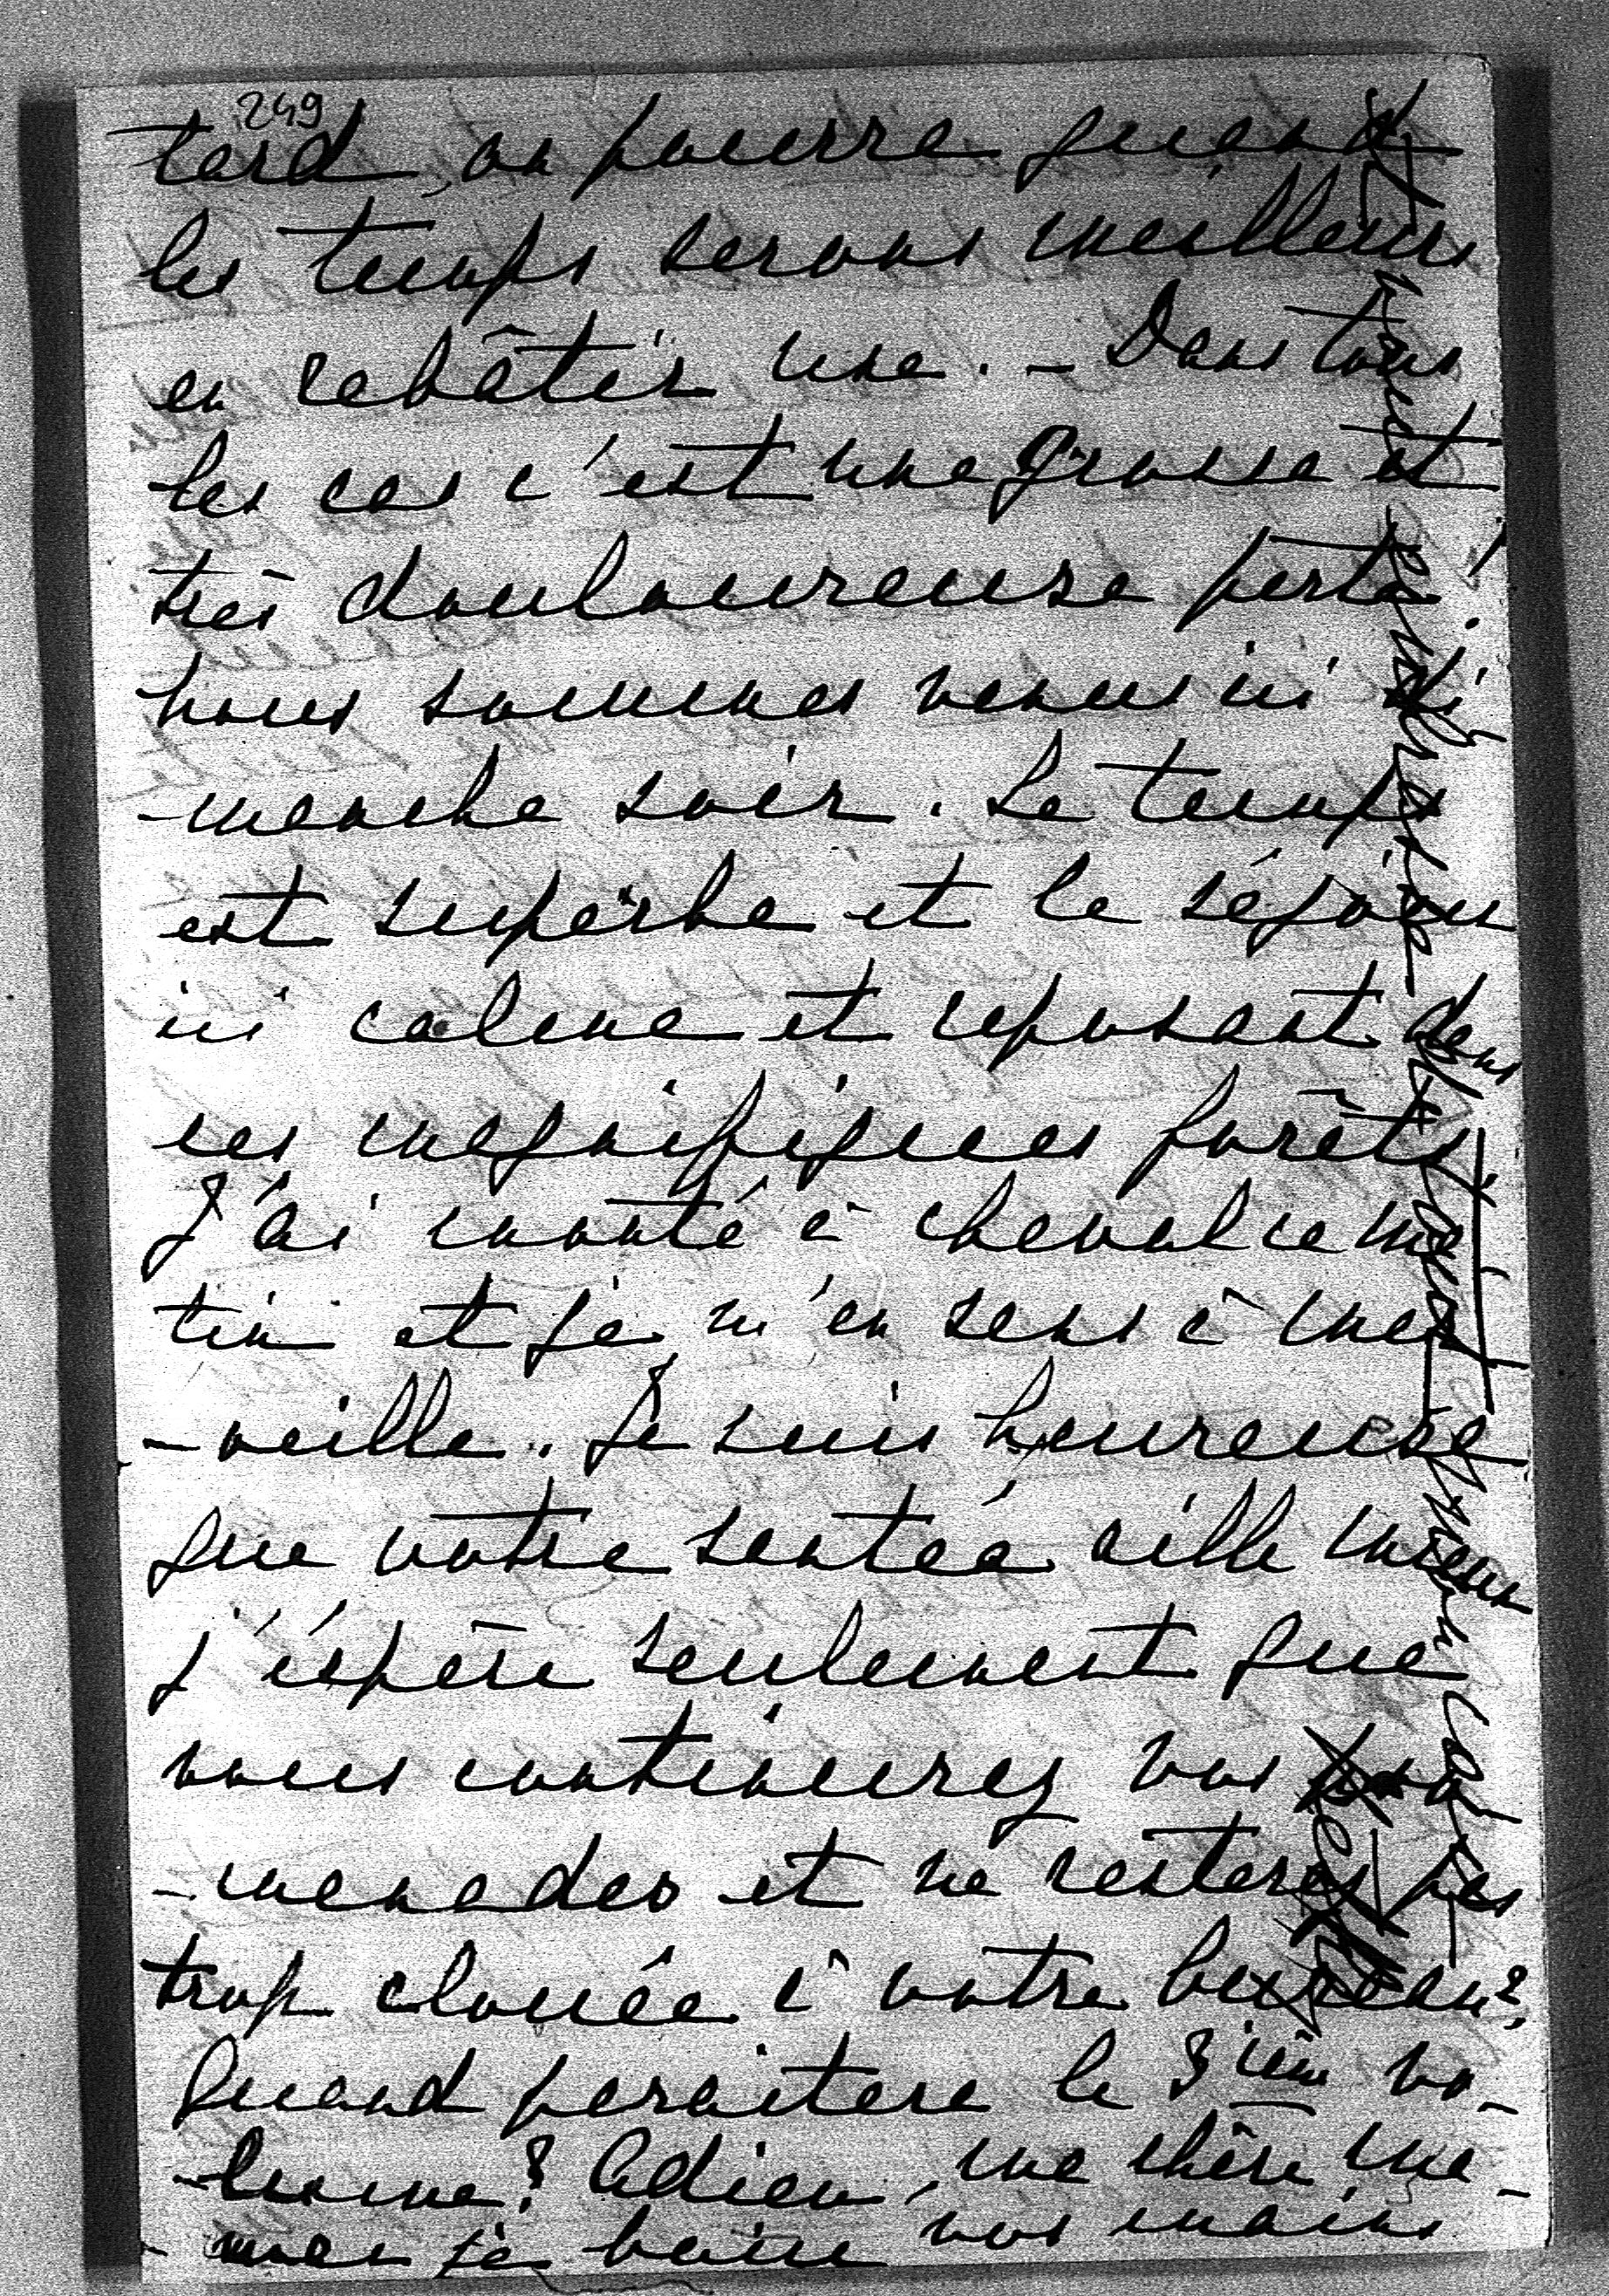 249
tard, on pourra quand
les temps serons meilleurs
en rebâtir une. - Dans tous
les cas c'est une grosse et
très douloureuse perte!
Nous sommes venus ici di
-manche soir. Le temps
est superbe et le séjour
ici calme et reposant dans
ces magnifiques forêts.
J'ai monté à cheval ce ma
tin et je m'en sens à mer
-veille. Je suis heureuse
que votre santée aille mieux
j'éspère seulement que
vous continuerez vos pro
-menades et ne resterez pas
trop clouée à votre bureau?
Quand paraitera le 3ièm vo-
-lume? Adieu, ma chère ma-
-man je baise vos mains